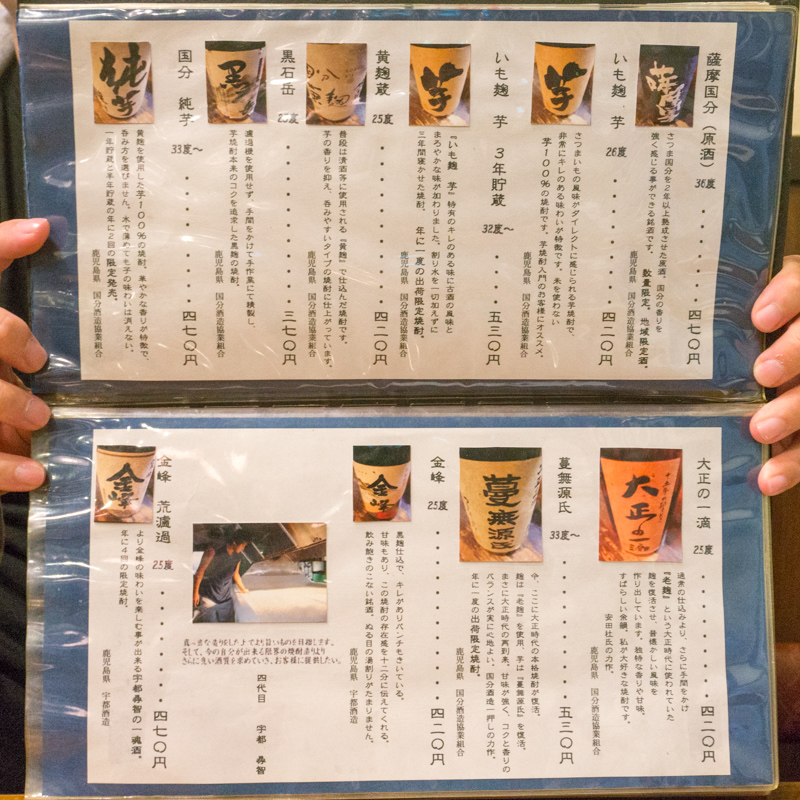 薩摩国分（原酒）
36度
四七〇円
さつま国分を2年以上熟成させた原酒。国分の香りを
強く感じる事ができる銘酒です。
数量限定。地域限定酒。
鹿児島県 国分酒造協業組合
いも麹 芋
26度
四二〇円
さつまいもの風味がダイレクトに感じられる芋焼酎で、
非常にキレのある味わいが特徴です。米を使わない
芋100%の焼酎です。芋焼酎入門のお客様にオススメ。
鹿児島県 国分酒造協業組合
いも麹 芋 3年貯蔵
32度～
五三〇円
『いも麹 芋』特有のキレのある味に古酒の風味と
まろやかな味が加わりました。割り水を一切加えずに
三年間寝かせた焼酎。年に一度の出荷限定焼酎。
鹿児島県 国分酒造協業組合
黄麹蔵
25度
四二〇円
普段は清酒等に使用される『黄麹』で仕込んだ焼酎です。
芋の香りを抑え、呑みやすいタイプの焼酎に仕上がっています。
鹿児島県 国分酒造協業組合
黒石岳
25度
三七〇円
濾過機を使用せず、手間をかけて手作業にて精製し、
芋焼酎本来のコクを追求した黒麹の焼酎。
鹿児島県 国分酒造協業組合
国分 純芋
33度～
四七〇円
黄麹を使用した芋100%の焼酎。華やかな香りが特徴で、
呑み方を選びません。水で薄めても芋の味わいは消えない、
一年貯蔵と半年貯蔵の年に2回の限定発売。
鹿児島県 国分酒造協業組合
大正の一滴
25度
四二〇円
通常の仕込みより、さらに手間をかけ
『老麹』という大正時代に使われていた
麹を復活させ、昔懐かしい風味を
作り出しています。独特な香りや甘味、
すばらしい余韻、私が大好きな焼酎です。
安田杜氏の力作。
鹿児島県 国分酒造協業組合
蔓無源氏
33度～
五三〇円
今、ここに大正時代の本格焼酎が復活。
麹は『老麹』を使用、芋は『蔓無源氏』を復活。
まさに大正時代の再到来、甘味が強く、コクと香りの
バランスが実に心地よい。国分酒造一押しの力作。
年に一度の出荷限定焼酎。
鹿児島県 国分酒造協業組合
金峰
25度
四二〇円
黒麹仕込で、キレがありパンチもきいている。
甘味もあり、この焼酎の存在感を十二分に伝えてくれる。
飲み飽きのこない銘酒。ぬる目の湯割りがたまりません。
鹿児島県 宇都酒造
真っ当な造りをした上でより旨いものを目指します。
そして、今の自分が出来る限界の焼酎造りより
さらに良い酒質を求めていき、お客様に提供したい。
四代目 宇都 尋智
金峰 荒濾過
25度
四七〇円
より金峰の味わいを楽しむ事が出来る宇都尋智の一魂酒。
年に4回の限定焼酎。
鹿児島県 宇都酒造
純芋
黒
芋
芋
大正の一滴
蔓無源氏
金峰
金峰